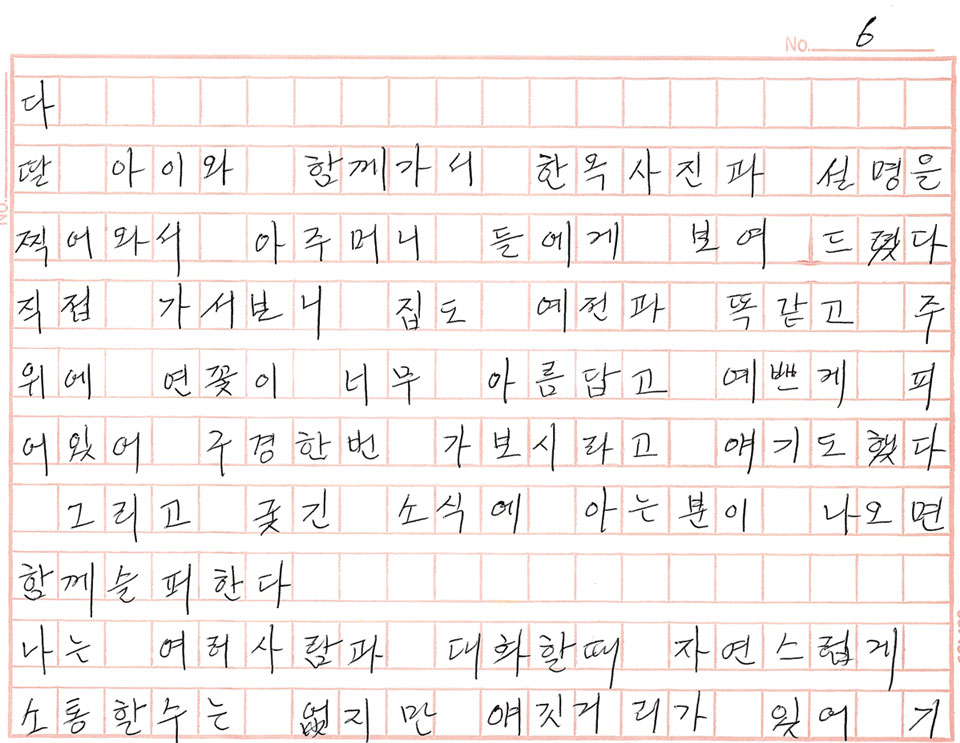 No. 6
다
딸 아이와 함께가서 한옥사진과 설명을
찍어와서 아주머니 들에게 보여 드렸다
직접 가서보니 집도 예전과 똑같고 주
위에 연꽃이 너무 아름답고 예쁘게 피
어있어 구경한번 가보시라고 얘기도했다
그리고 궂긴 소식에 아는분이 나오면
함께슬퍼한다
나는 여러사람과 대화할때 자연스럽게
소통할수는 없지만 얘깃거리가 있어 기